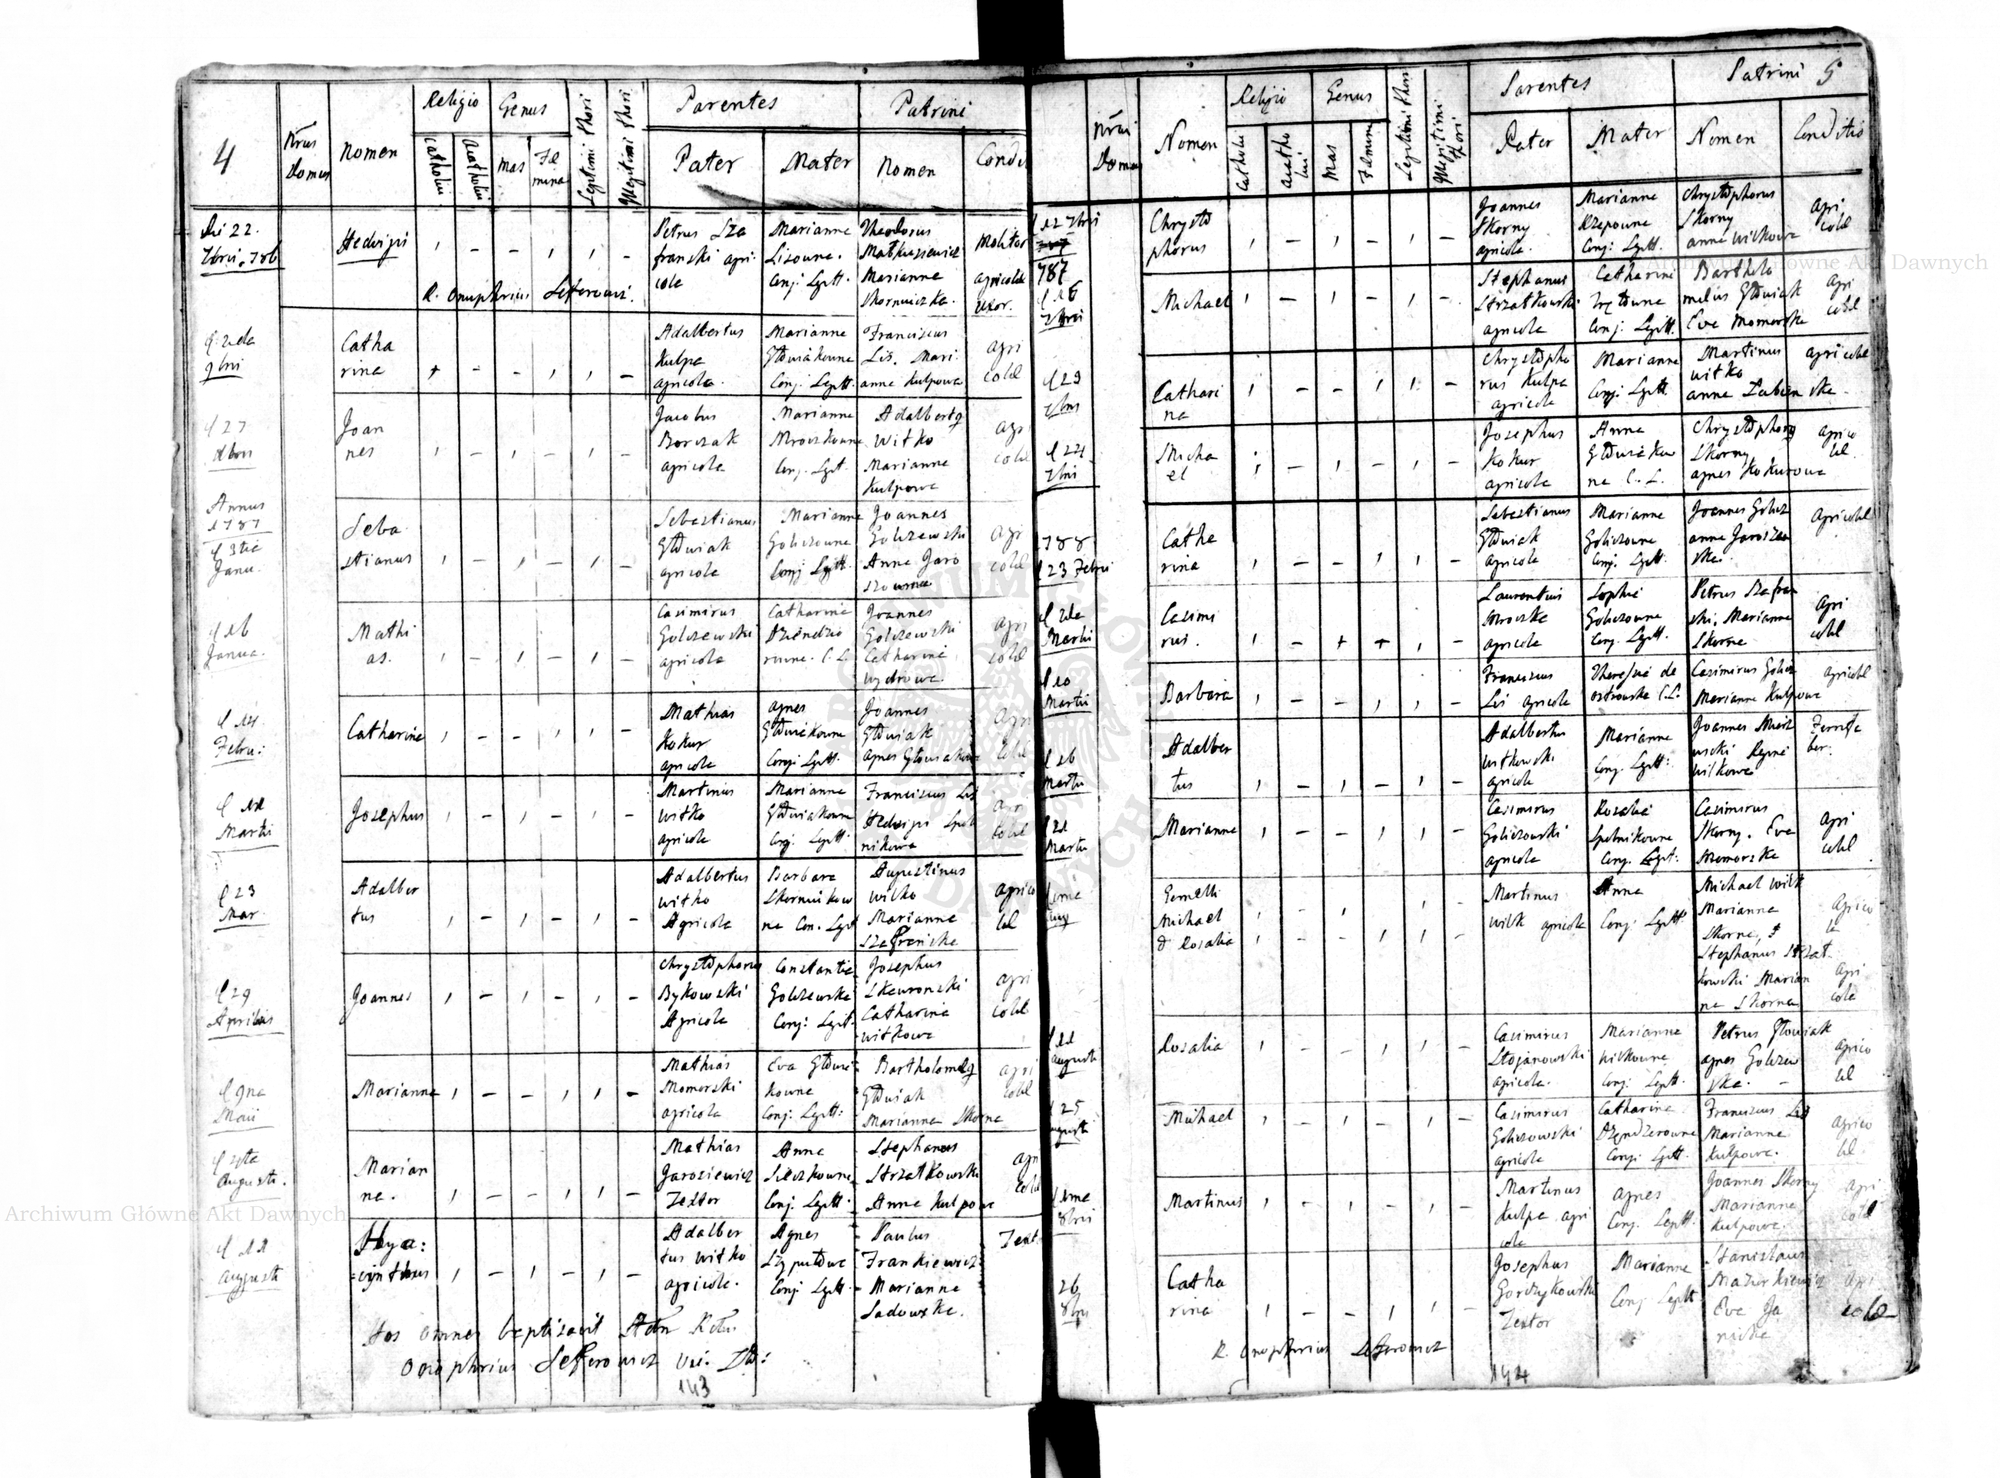 4
Nrus Domus
Nomen
Religio
Catholici
Acatholici
Genus
Mas
Femina
Legitimi thori
Illegitimi thori
Parentes
Pater
Mater
Patrini
Nomen
Condi
Die 22.
7bris. 786
Hedvigis
Petrus Sza
franski agri-
cola
Marianna
Lisowna.
Conj: Legtt.
Theodorus
Matkusiewicz
Marianna
Skorniczka.
Molitor
agricolae
Uxor.
R. Onuphrius Seferowi.
d. 2da
9bri
Catha
rina
Adalbertus
Kulpa
agricola.
Marianna
Głowiakowna
Conj. Legtt.
Franciscus
Lis. Mari-
anna Kulpowa
agri
colae
d 27
Joan
nes
Jacobus
Borczak
agricola
Marianna
Mroczkowna
Conj. Legt.
Adalbertg
Witko
Marianna
Kulpowa
agri
colae
Annus
1787
d 3tia
Janu.
Seba
stianus
Sebastianus
Głowiak
agricola
Marianna
Goliczowna
Conj Legtt.
Joannes
Golczewski
Anna Jaro
szowna
agri
colae
d 16
Janua.
Mathi
as.
Casimirus
Golczewski
agricola
Catharina
C. L.
Joannes
Golczewski
Catharina
agri
colae
d 14
Febru:
Catharina
Mathias
Kokur
agricola
agnes
Głowiakowna
Conj: Legtt.
Joannes
Głowiak
agnes Głowiakowa
agri
colae
Martii
Josephus
Martinus
Witko
agricola
Marianna
Głowiakowna
Conj. Legtt.
Franciscus Lis
Hedvigis Spot
nikowa
agri
colae
d 23
Mar.
Adalber
tus
Adalbertus
Witko
Agricola
Barbara
Skornikow
na Con. Legt
Augustinus
Witko
Marianna
Szafranska
agrico
lae
d 29
Aprilis
Joannes
Chrystophorus
Bykowski
Agricola
Constantia
Golczewska
Conj: Legtt.
Josephus
Skewronski
Catharina
Witkowa
agri
colae
d 9na
Maii
Marianna
Mathias
Momorski
agricola
Eva Głowia
kowna
Conj: Legtt:
Bartholomeg
Głowiak
Marianna Skorna
agri
colae
Augusti.
Marian
na.
Mathias
Jarosiewicz
Textor
Anna
Conj: Legtt.
Stephanus
Strzałkowski
Anna Kulpowa
agri
colae
augusti
Hya:
=cynthus
Adalber
tus Witko
agricola.
Agnes
Conj Legtt.
Paulus
Frankiewicz
Marianna
Sadowska.
Text
Hos omnes baptisavit
Onophrius Sefferowicz
143
Nrus
Domus
Nomen
Religio
Catholici
Acatholici
Genus
Mas
Femina
Legitimi thori
Illegitimi thori
Parentes
Pater
Mater
Patrini 5
Nomen
Conditio
d 12 7bris
787
Chrysto
phorus
Joannes
Skorny
agricola.
Marianna
Rzepowna
Conj: Legtt.
Chrystophorus
Skorny
anna Witkowa
agri
colae
d 16
7bris
Michael
Stephanus
Strzałkowski
agricola
Catharina
Conj: Legtt.
Bartholo
meus Głowiak
Eva Momorska
agri
colae
d 29
7bris
Cathari
na
Chrystopho
rus Kulpa
agricola
Marianna
Conj. Legtt.
Martinus
Witko
anna Zabien
ska.
agricolae
7bris
Micha
el
Josephus
Kokur
agricola
Anna
Głowiakow
na C. L.
Chrystophorg
Skorny
agnes Kokurowa
agrico
lae
1788
d 23 Febru
Catha
rina
Sebastianus
Głowiak
agricola
Marianna
Goliczowna
Conj: Legtt.
Joannes Golicz
anna Jarosze
ska.
Agricolae
d 2da
Martii
Casimi
rus.
Laurentius
Mroczka
agricola
Sophia
Goliczowna
Conj. Legtt.
Petrus Szafran
ski, Marianna
Skorna
agri
colae
d 10
Martii
Barbara
Franciscus
Lis agricola
Theresia de
ostrowska C.L.
Casimirus Golicz
Marianna Kulpowa
agricolae
d 26
Martii
Adalber
tus
Adalbertus
Witkowski
agricola
Marianna
Conj. Legtt:
Joannes
Regina
Witkowa
Martii
Marianna
Casimirus
Goliczowski
agricola
Rosalia
Spotnikowna
Conj. Legt:
Casimirus
Skorny. Eva
Momorska
agri
colae
Gemelli
Michael
& Rosalia
Martinus
Wilk agricola
Anna
Conj Legtt:
Michael Wilk
Marianna
Skorna, &
Stephanus Strzał
kowski Marian
na Skorna
agrico
lae
agri
colae
augusti
Rosalia
Casimirus
Stojanowski
agricola.
Marianna
Wilkowna
Conj: Legtt.
Petrus Głowiak
agnes Golczew
ska.
agrico
lae
d 25
augusti
Michael
Casimirus
Goliczowski
agricola
Catharina
Conj: Legtt.
Franciscus Lis
Marianna
Kulpowa.
agrico
lae.
8bris
Martinus
Martinus
Kulpa agri
cola
agnes
Conj. Legtt.
Joannes Skorny
Marianna
Kulpowa.
agri
colae
26
8bris
Catha
rina
Josephus
Gorczykowski
Textor
Marianna
Conj Legtt.
Stanislaus
Mazurkiewicz
Eva Ja
nicka
agri
colae
R. Onophrius Seferowicz
144
Archiwum Główne Akt Dawnych
Archiwum Główne Akt Dawnych
ARCHIWUM GŁÓWNE AKT DAWNYCH